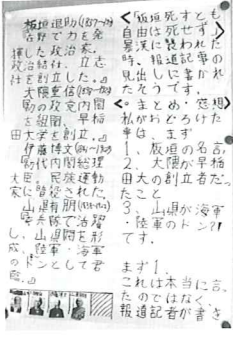 板垣退助(1837~1919
在野で力を発
揮した政治家。
政治結社、立志
社を創立した。』
大隈重信(1838~1922
の政党内閣
を組閣、早稲
田大学を創立。』
伊藤博文(1841~1909
初代内閣総理
大臣。民族運動
家に暗殺された。
山県有朋(1838~1922
兵隊で活躍
し、山県閥を形
成、陸軍・海軍
のドンとして君
臨。』
<「板垣死すとも
自由は死せず」>
暴漢に襲われた
時、報道記事の
見出しに書かれ
たそうです。
<○まとめ・感想>
私がおどろけた
事は、まず
1、板垣の名言
2、大隈が早稲
田大の創立者だっ
たこと
3、山県が海軍
・陸軍のドン?!
です。
まず1、
これは本当に言っ
たのではなく、
報道記者が書き